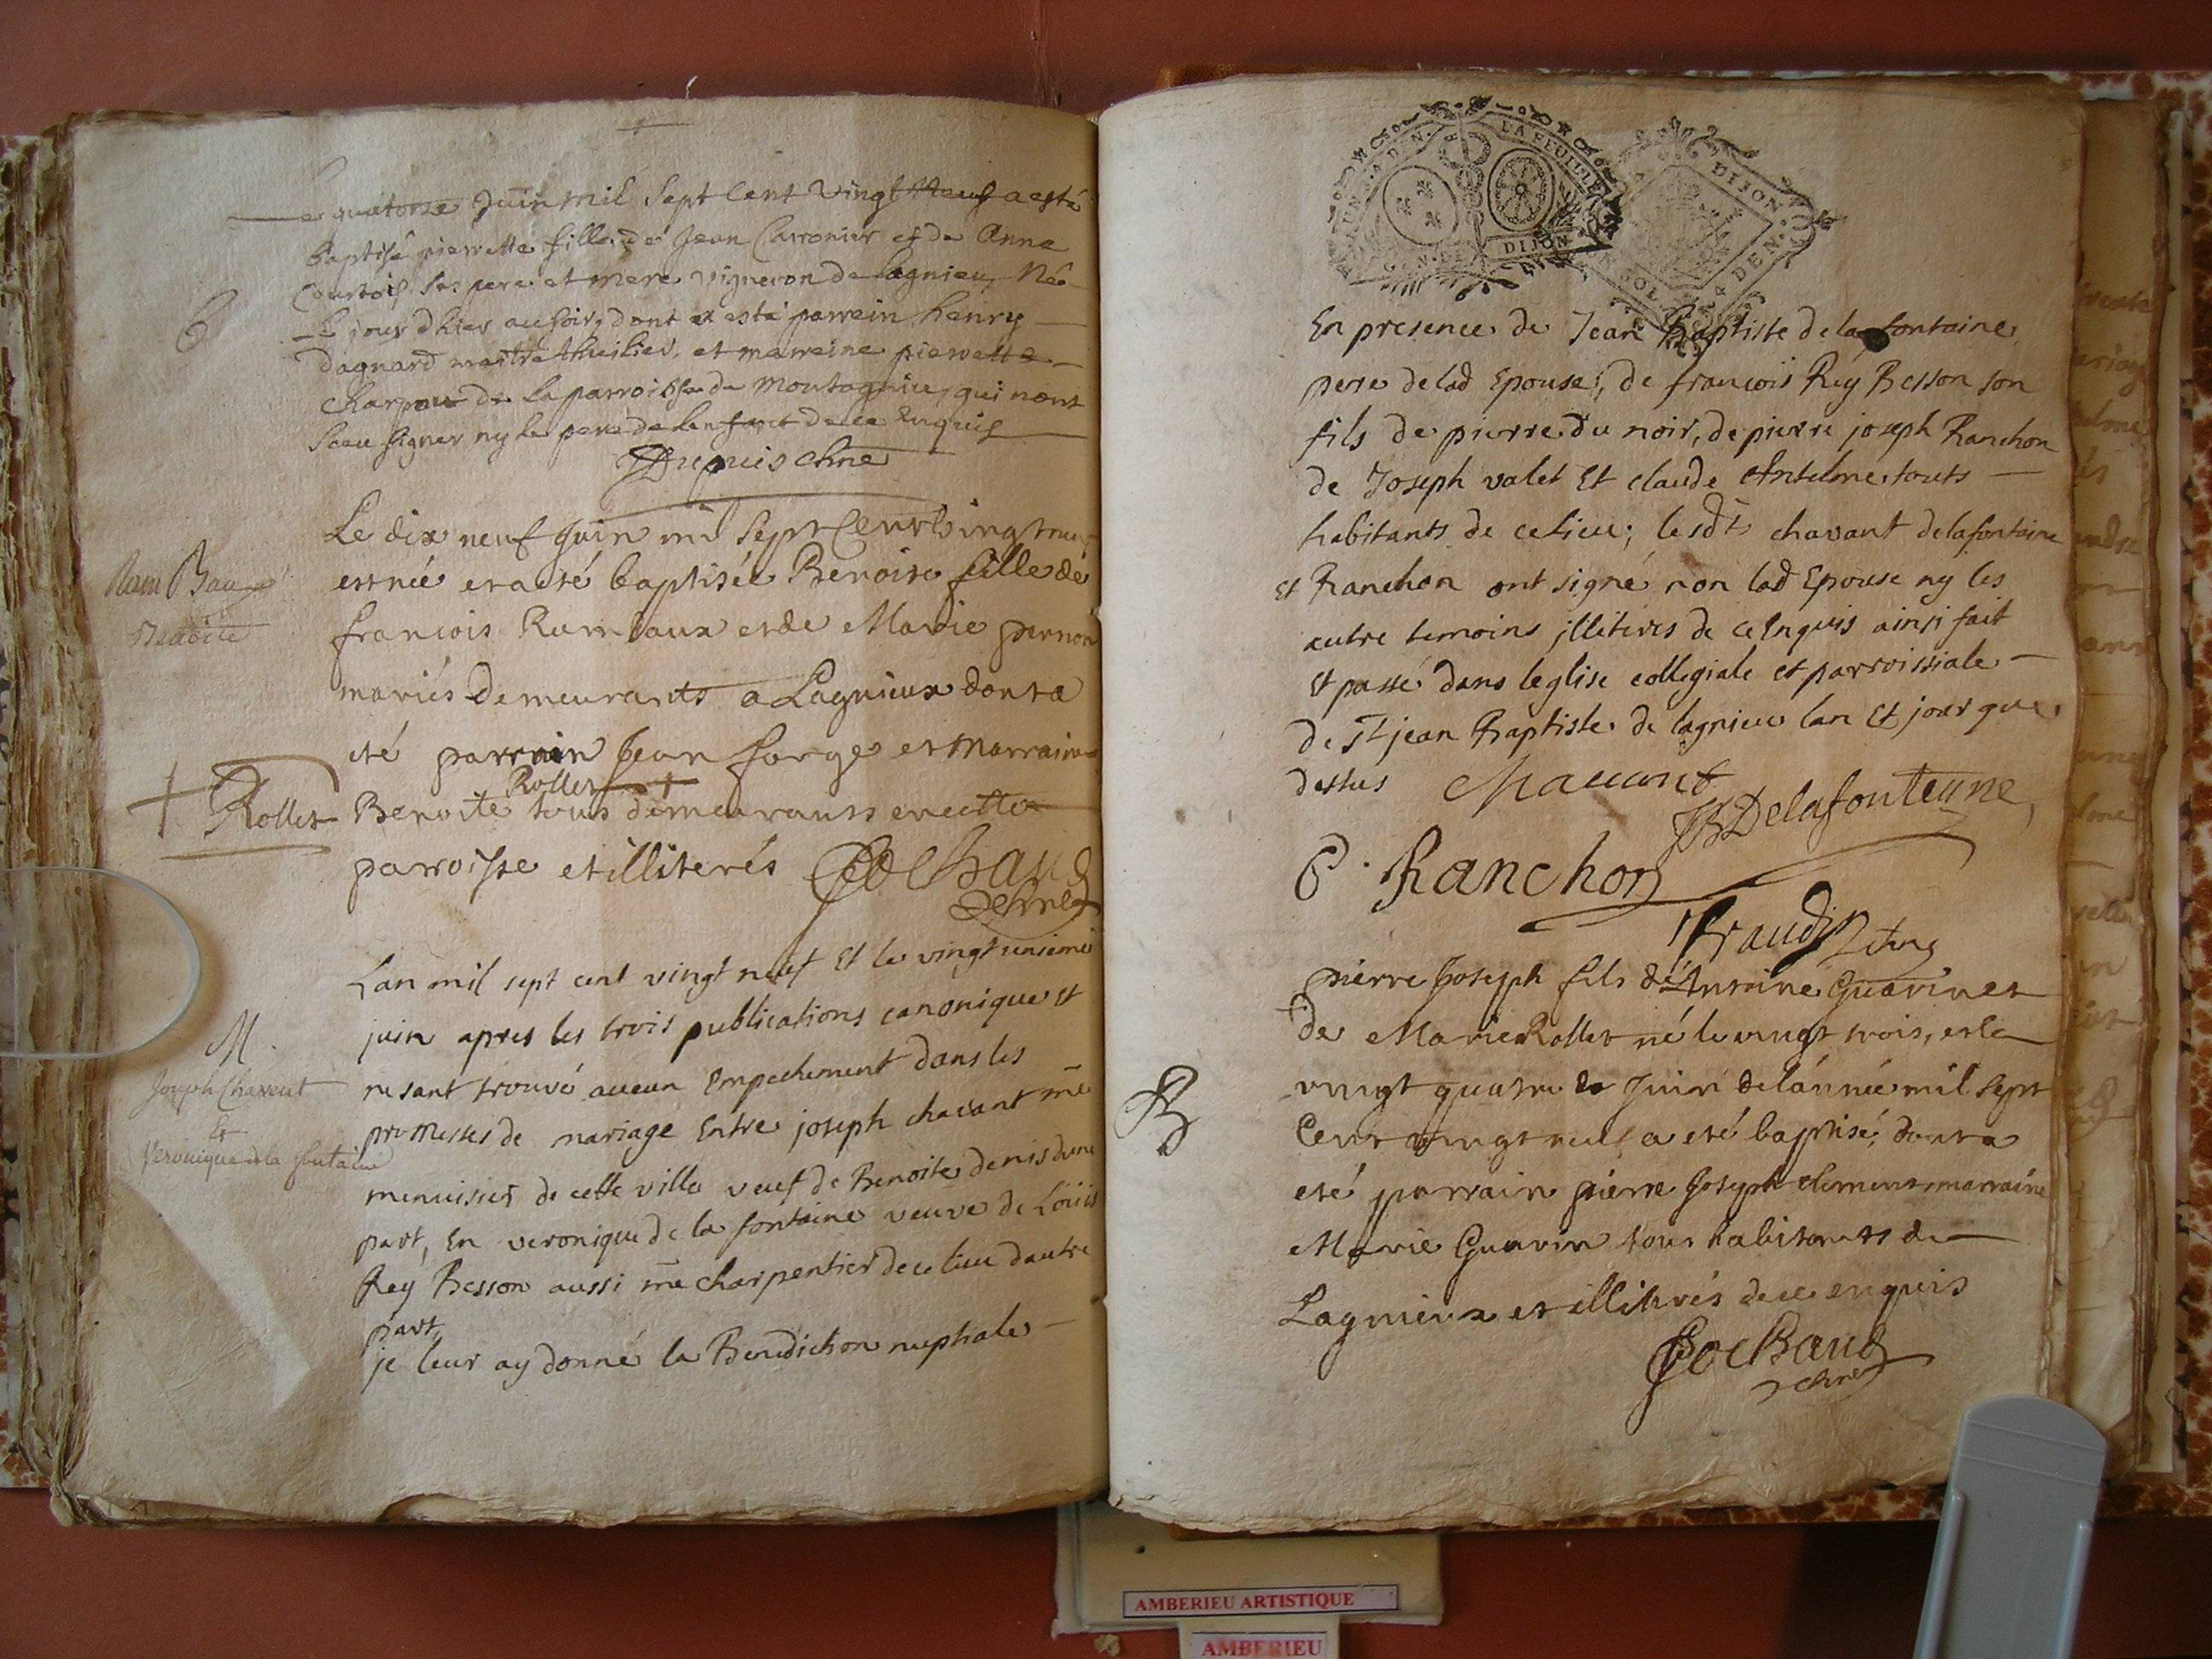 Le quatorze Juin mil Sept Cent vingt Neuf a esté
baptisé pierrette fille de Jean Carronier et de Anne
Courtois ses pere et mere vigneron de lagnieu, Née
le jour dhier au soir, dont a esté parrein henry
B
dagnard maitre thuilier, et marreine pierrette
de la parroisse de Montagnieu, qui nont
sceu signer ny le pere de lenfant de ce Enquis
Dupuis chne
Le dix neuf Juin mil Sept Cent vingt neuf
est née et a eté baptisée Benoite fille de
Ram Baux
Benoite
francois Rambaux et de Marie pernon
mariés Demeurants a Lagnieux dont a
eté parrain Jean forge et Marraine
Rollet +
+ Rollet
Benoite tous demeurants en cette
parroisse et illiterés Cochaud
chne
Lan mil sept cent vingt neuf Et le vingt unieme
juin apres les trois publications canonique et
M.
ne sant trouvé aucun Empechement dans les
Joseph Chavent
Et
Veronique de la fontaine
promesses de mariage Entre joseph chavant me
menuisier de cette ville veuf de Benoite denis dune
part, En veronique de la fontaine veuve de Loüis
Rey Besson aussi me charpentier de ce lieu dautre
part
je leur ay donné la Benediction nuptiale
GEN. DE
DIJON
LA FEUILLE
DIJON
SOL
4 DEN.
En presence de Jean Baptiste de la fontaine
pere de lad Epouse, de francois Rey Besson son
fils de pierre du noir, de pierre joseph Ranchon
de Joseph valet Et claude Antelme touts
habitants de ce lieu; lesdts chavant delafontaine
Et Ranchon ont signé non lad Epouse ny les
autre temoins illiteres de ce Enquis ainsi fait
Et passé dans leglise collegiale et parroissiale
de St jean Baptiste de lagnieu lan Et jour que
dessus Chavant
JB Delafonteine
P. Ranchon
pierre Joseph fils de Antoine Guarin et
de Marie Rollet né le vingt trois, et le
B
vingt quatre de Juin de lánnée mil sept
Cent vingt neuf a eté baptisé, dont a
eté parrain pierre Joseph clement marraine
Marie Guarin tous habitants de
Lagnieux et illiterés de ce enquis
Cochaud
chne
AMBERIEU ARTISTIQUE
AMBERIEU